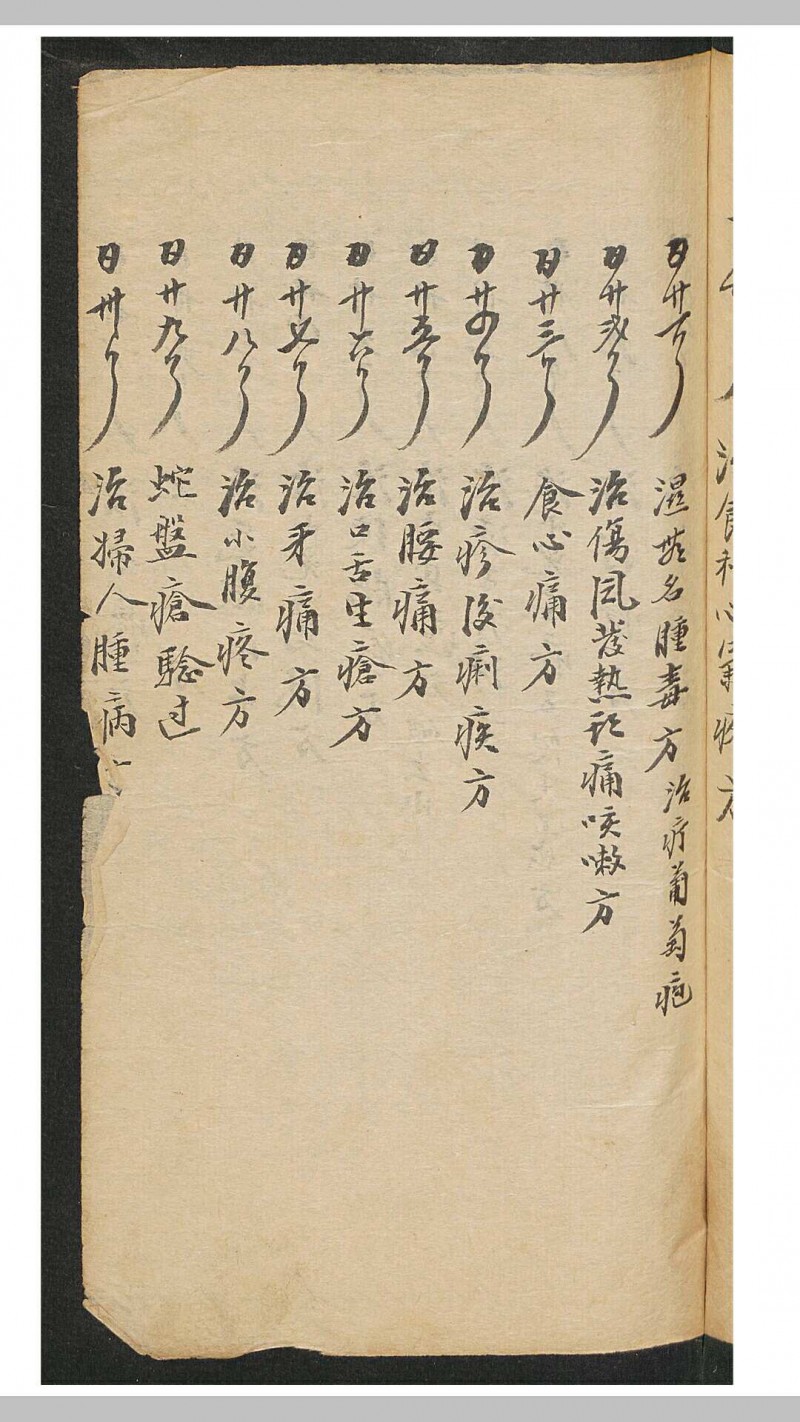 治食和心氣疼方
日廿一 濕無名腫毒方 治疗葡萄疱
日廿弍 治傷風發熱頭痛咳嗽方
日廿三 食心痛方
日廿四 治疹後痢疾方
日廿五 治腰痛方
日廿六 治口舌生瘡方
日廿七 治牙痛方
日廿八 治小腹疼方
日廿九 蛇盤瘡騐过
日卅 治婦人腫病